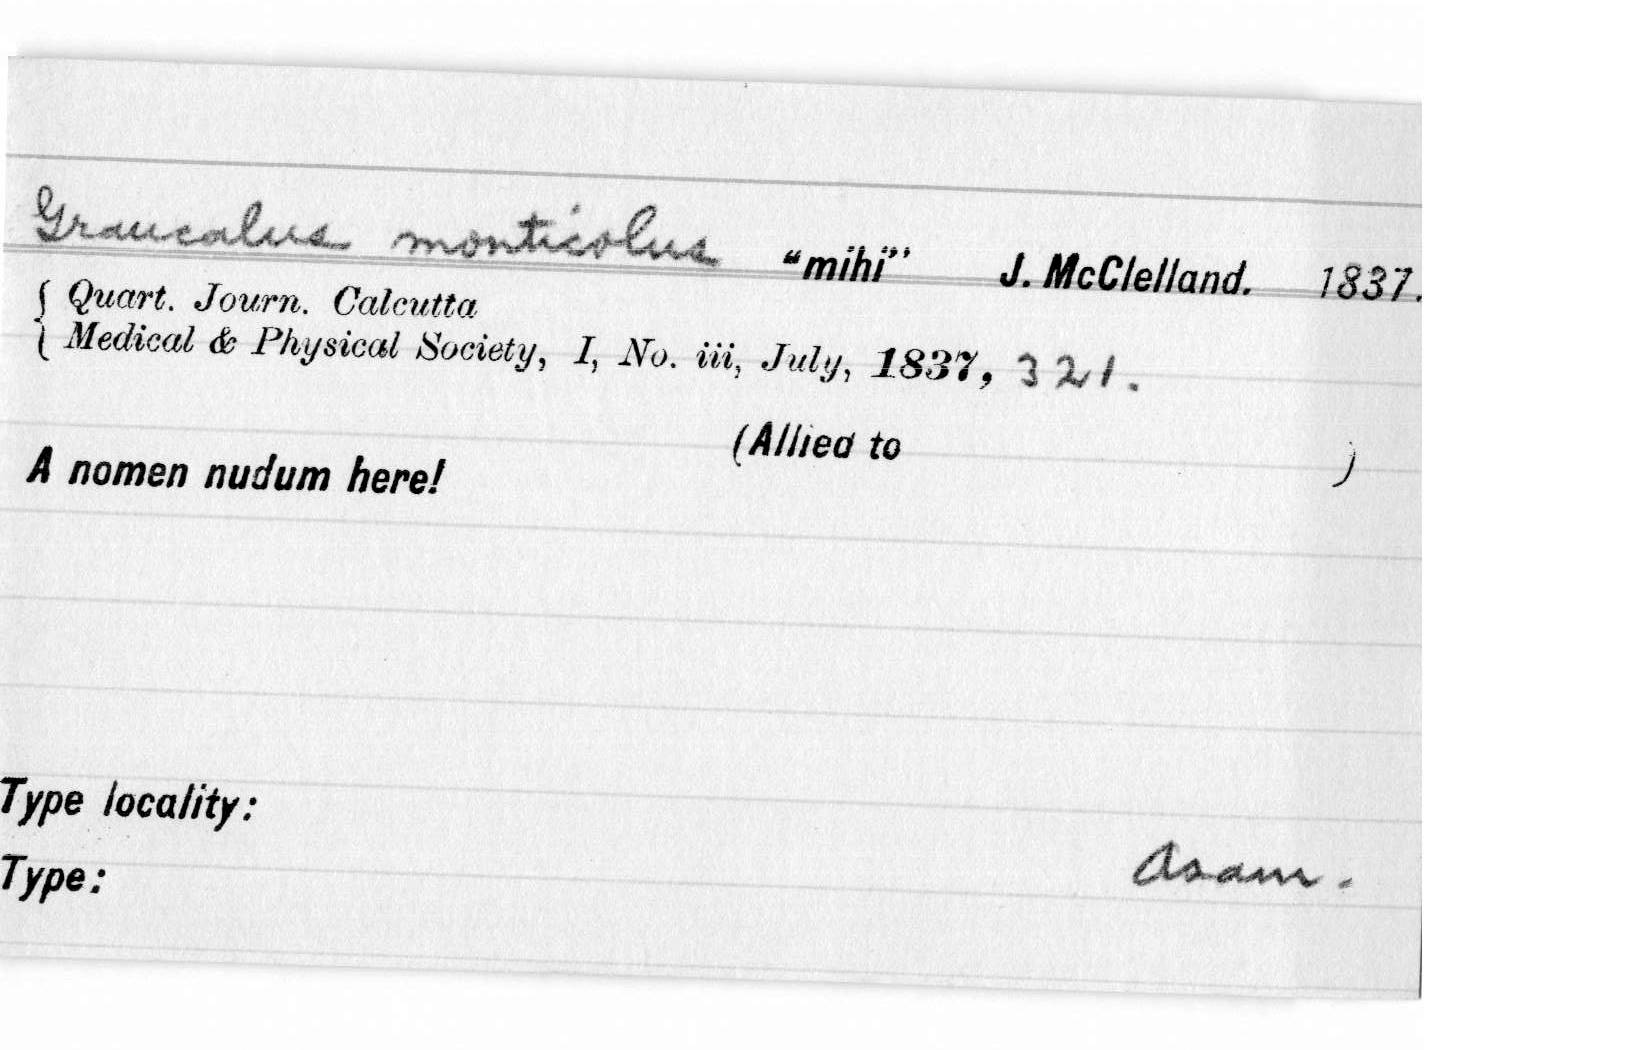 Graucalus monticolus “mihi” J. McClelland. 1837.
{ Quart. Journ. Calcutta
{ Medical & Physical Society, I, No. iii, July, 1837, 321.
(Allied to )
A nomen nudum here!
Type locality:
Asam.
Type: